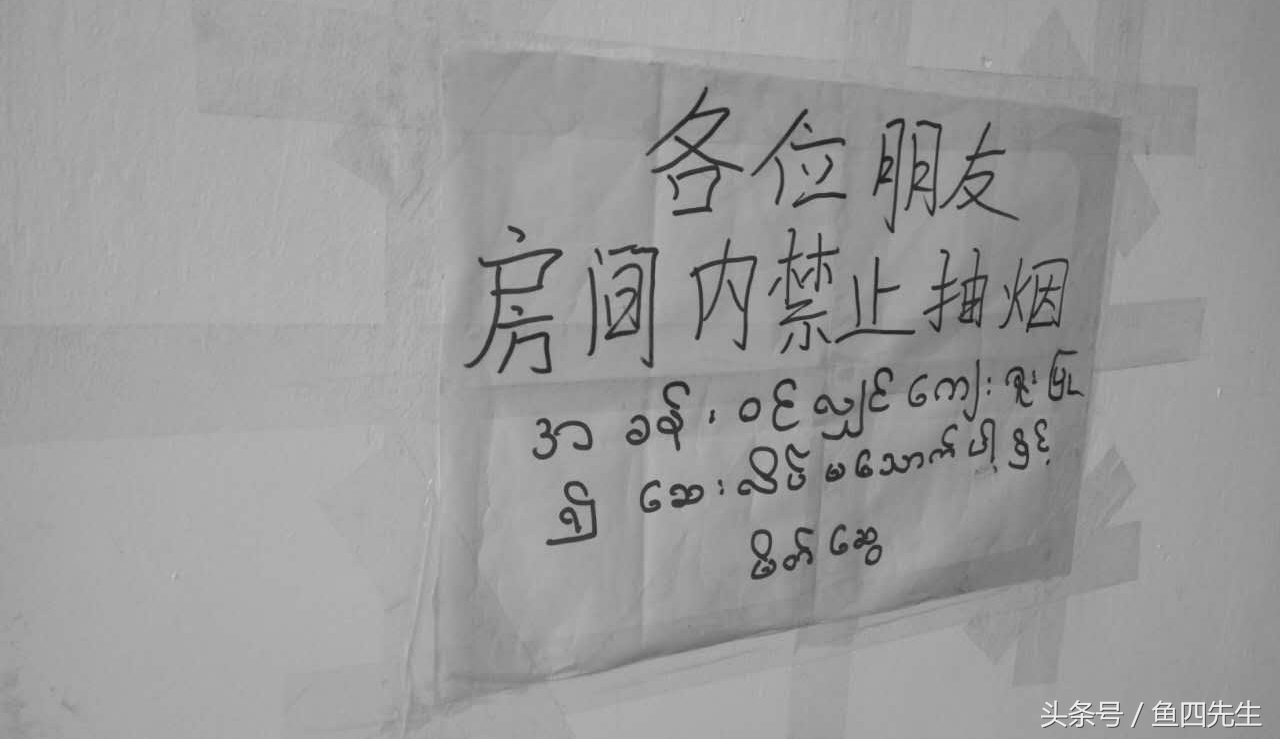 各位朋友
房间内禁止抽烟
အခန်းဝင်လျှင်ကျေးဇူးပြု
၍ ဆေးလိပ်မသောက်ပါနှင့်
မိတ်ဆွေ
头条号 / 鱼四先生